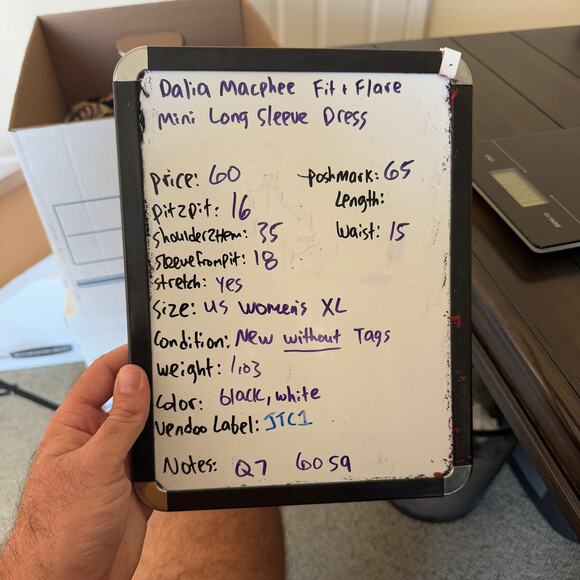 Dalia Macphee Fit + Flare
Mini Long Sleeve Dress
price: 60
poshmark: 65
pit2pit: 16
Length:
shoulder2Hem: 35
Waist: 15
sleevefrompit: 18
stretch: yes
Size: US Women's XL
Condition: New without Tags
weight: 1.03
Color: black, white
Vendoo Label: JTC1
Notes: Q7 6059